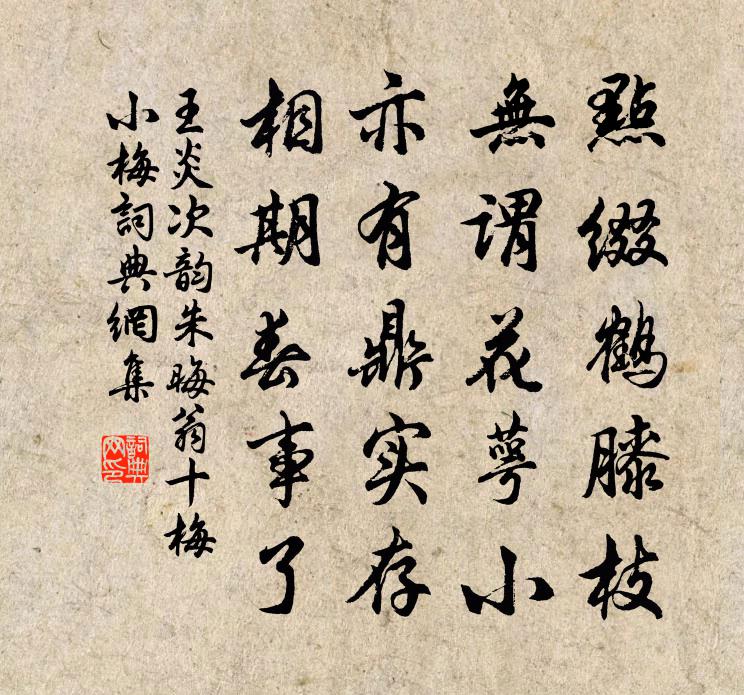 點綴鶴膝枝
無謂花萼小
亦有鼎实存
相期春事了
王炎次韵朱晦翁十梅
小梅詞典網集
詞典
网印